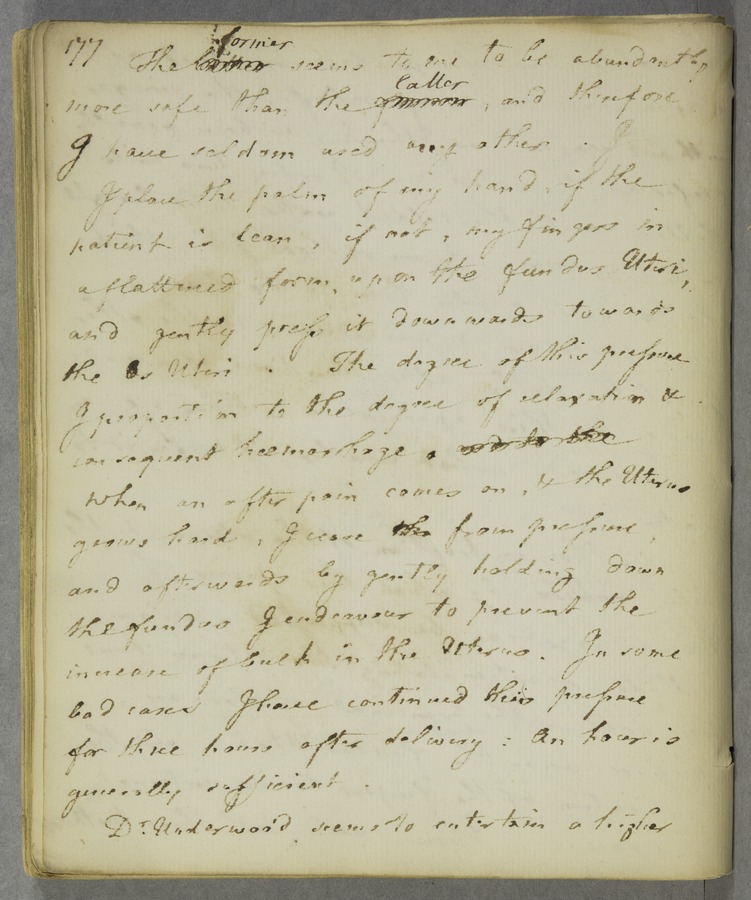 177
former
The latter seems to me to be abundantly
latter
more safe than the former, and therefore
I have seldom used any other. I
I place the palm of my hand, if the
patient is lean, if not, my fingers in
a flattened form, upon the fundus Uteri,
and gently press it downwards towards
the Os Uteri. The degree of this pressure
I proportion to the degree of relaxation &
consequent hæmorrhage, and to the
when an after pain comes on, & the Uterus
grows hard, I cease the from pressure,
and afterwards by gently holding down
the fundus I endeavour to prevent the
increase of bulk in the Uterus. In some
bad cases I have continued this pressure
for three hours after delivery: An hour is
generally sufficient.
Dr. Underwood seems to entertain a higher